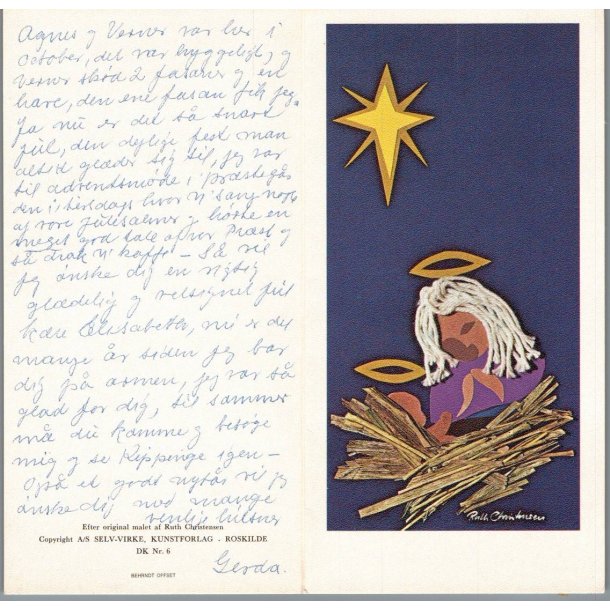 Agnes og Verner var her i
october, det var hyggeligt, og
Verner skød 2 fasaner og en
hare, den ene fasan fik jeg.
Ja nu er det så snart
jul, den dejlige fest man
altid glæder sig til, jeg var
til adventsmøde i præstegår
den i tirsdags hvor vi sang nogle
af vore julesalmer og hørte en
meget god tale af vor Præst og
så drak vi kaffe – Så vil
jeg ønske dig en rigtig
glædelig og velsignet jul
kære Elisabeth, nu er det
mange år siden jeg bar
dig på armen, jeg var så
glad for dig, til sommer
må du komme og besøge
mig og se Kippinge igen –
Også et godt nytår vil jeg
ønske dig med mange
venlige hilsner
Gerda.
Efter original malet af Ruth Christensen
Copyright A/S SELV-VIRKE, KUNSTFORLAG - ROSKILDE
DK Nr. 6
BEHRNDT OFFSET
Ruth Christensen